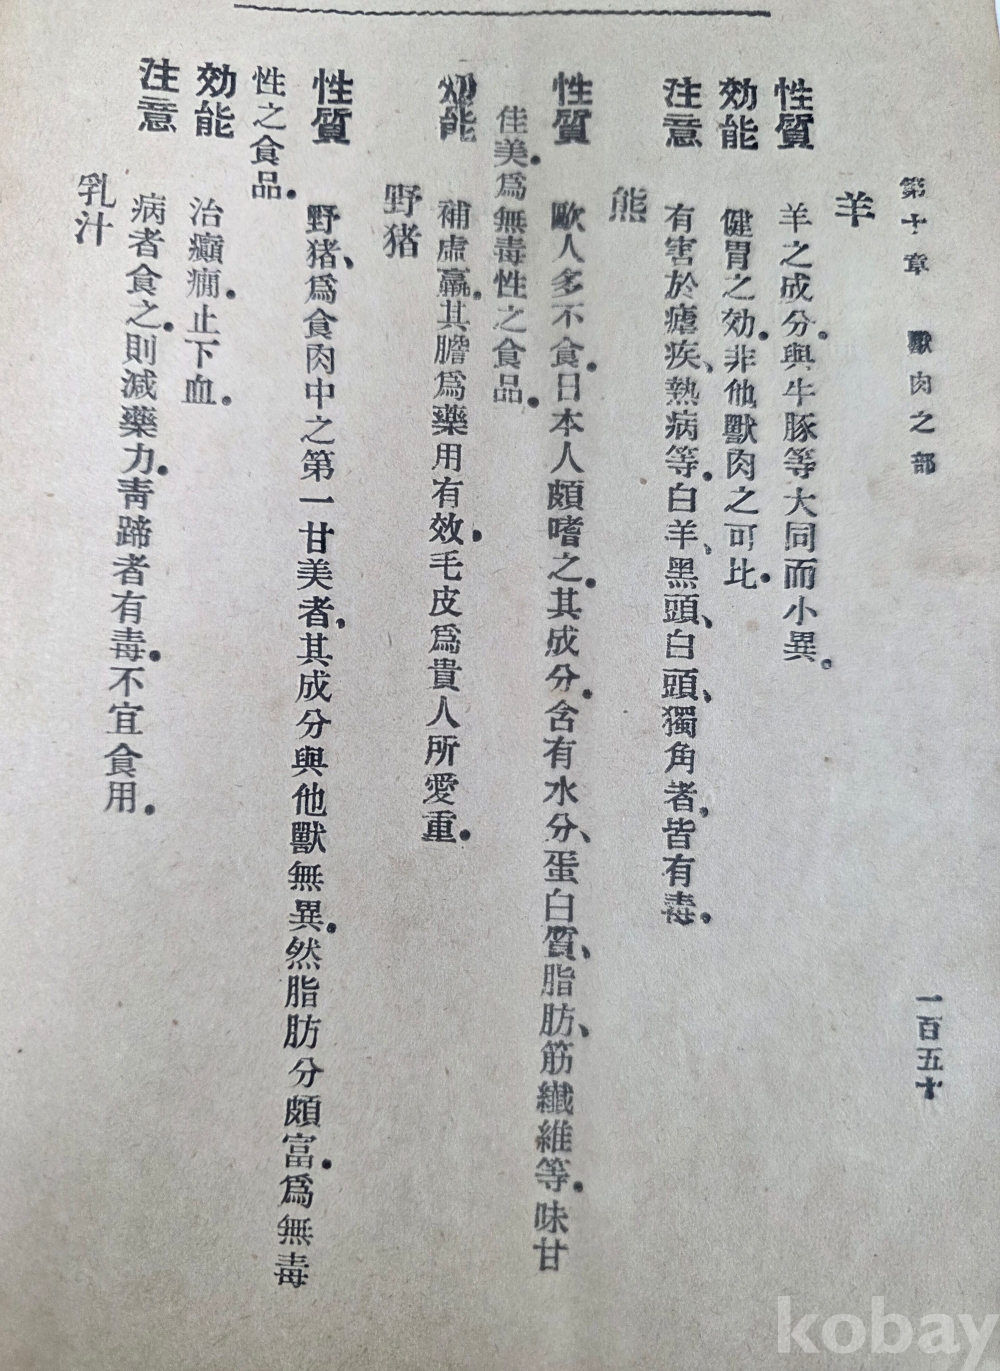 第十章　獸肉之部　一百五十
羊
性質　羊之成分。與牛豚等大同而小異。
効能　健胃之効。非他獸肉之可比。
注意　有害於瘧疾、熱病等。白羊、黑頭、白頭、獨角者，皆有毒。
熊
性質　歐人多不食。日本人頗嗜之。其成分。含有水分、蛋白質、脂肪、筋纖維等。味甘
佳美。爲無毒性之食品。
効能　補虛羸。其膽爲藥用有效。毛皮爲貴人所愛重。
野猪
性質　野猪、爲食肉中之第一甘美者，其成分與他獸無異。然脂肪分頗富。爲無毒
性之食品。
効能　治癲癇。止下血。
注意　病者食之。則減藥力。靑蹄者有毒。不宜食用。
乳汁
kobay